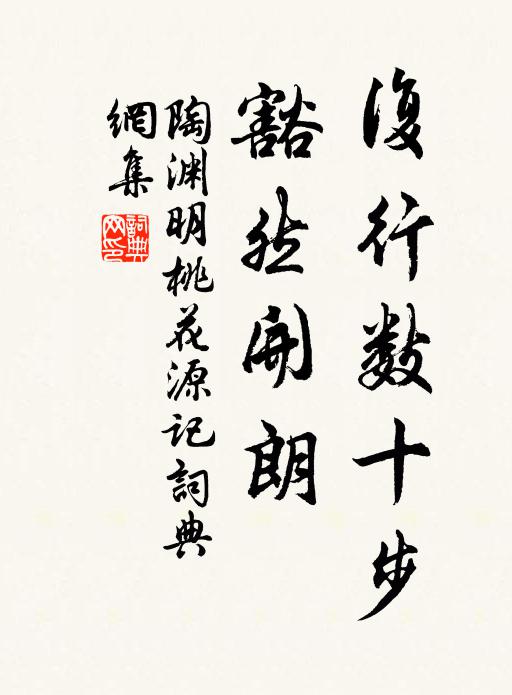 復行数十步
豁然開朗
陶渊明桃花源記詞典
網集
詞典
网印